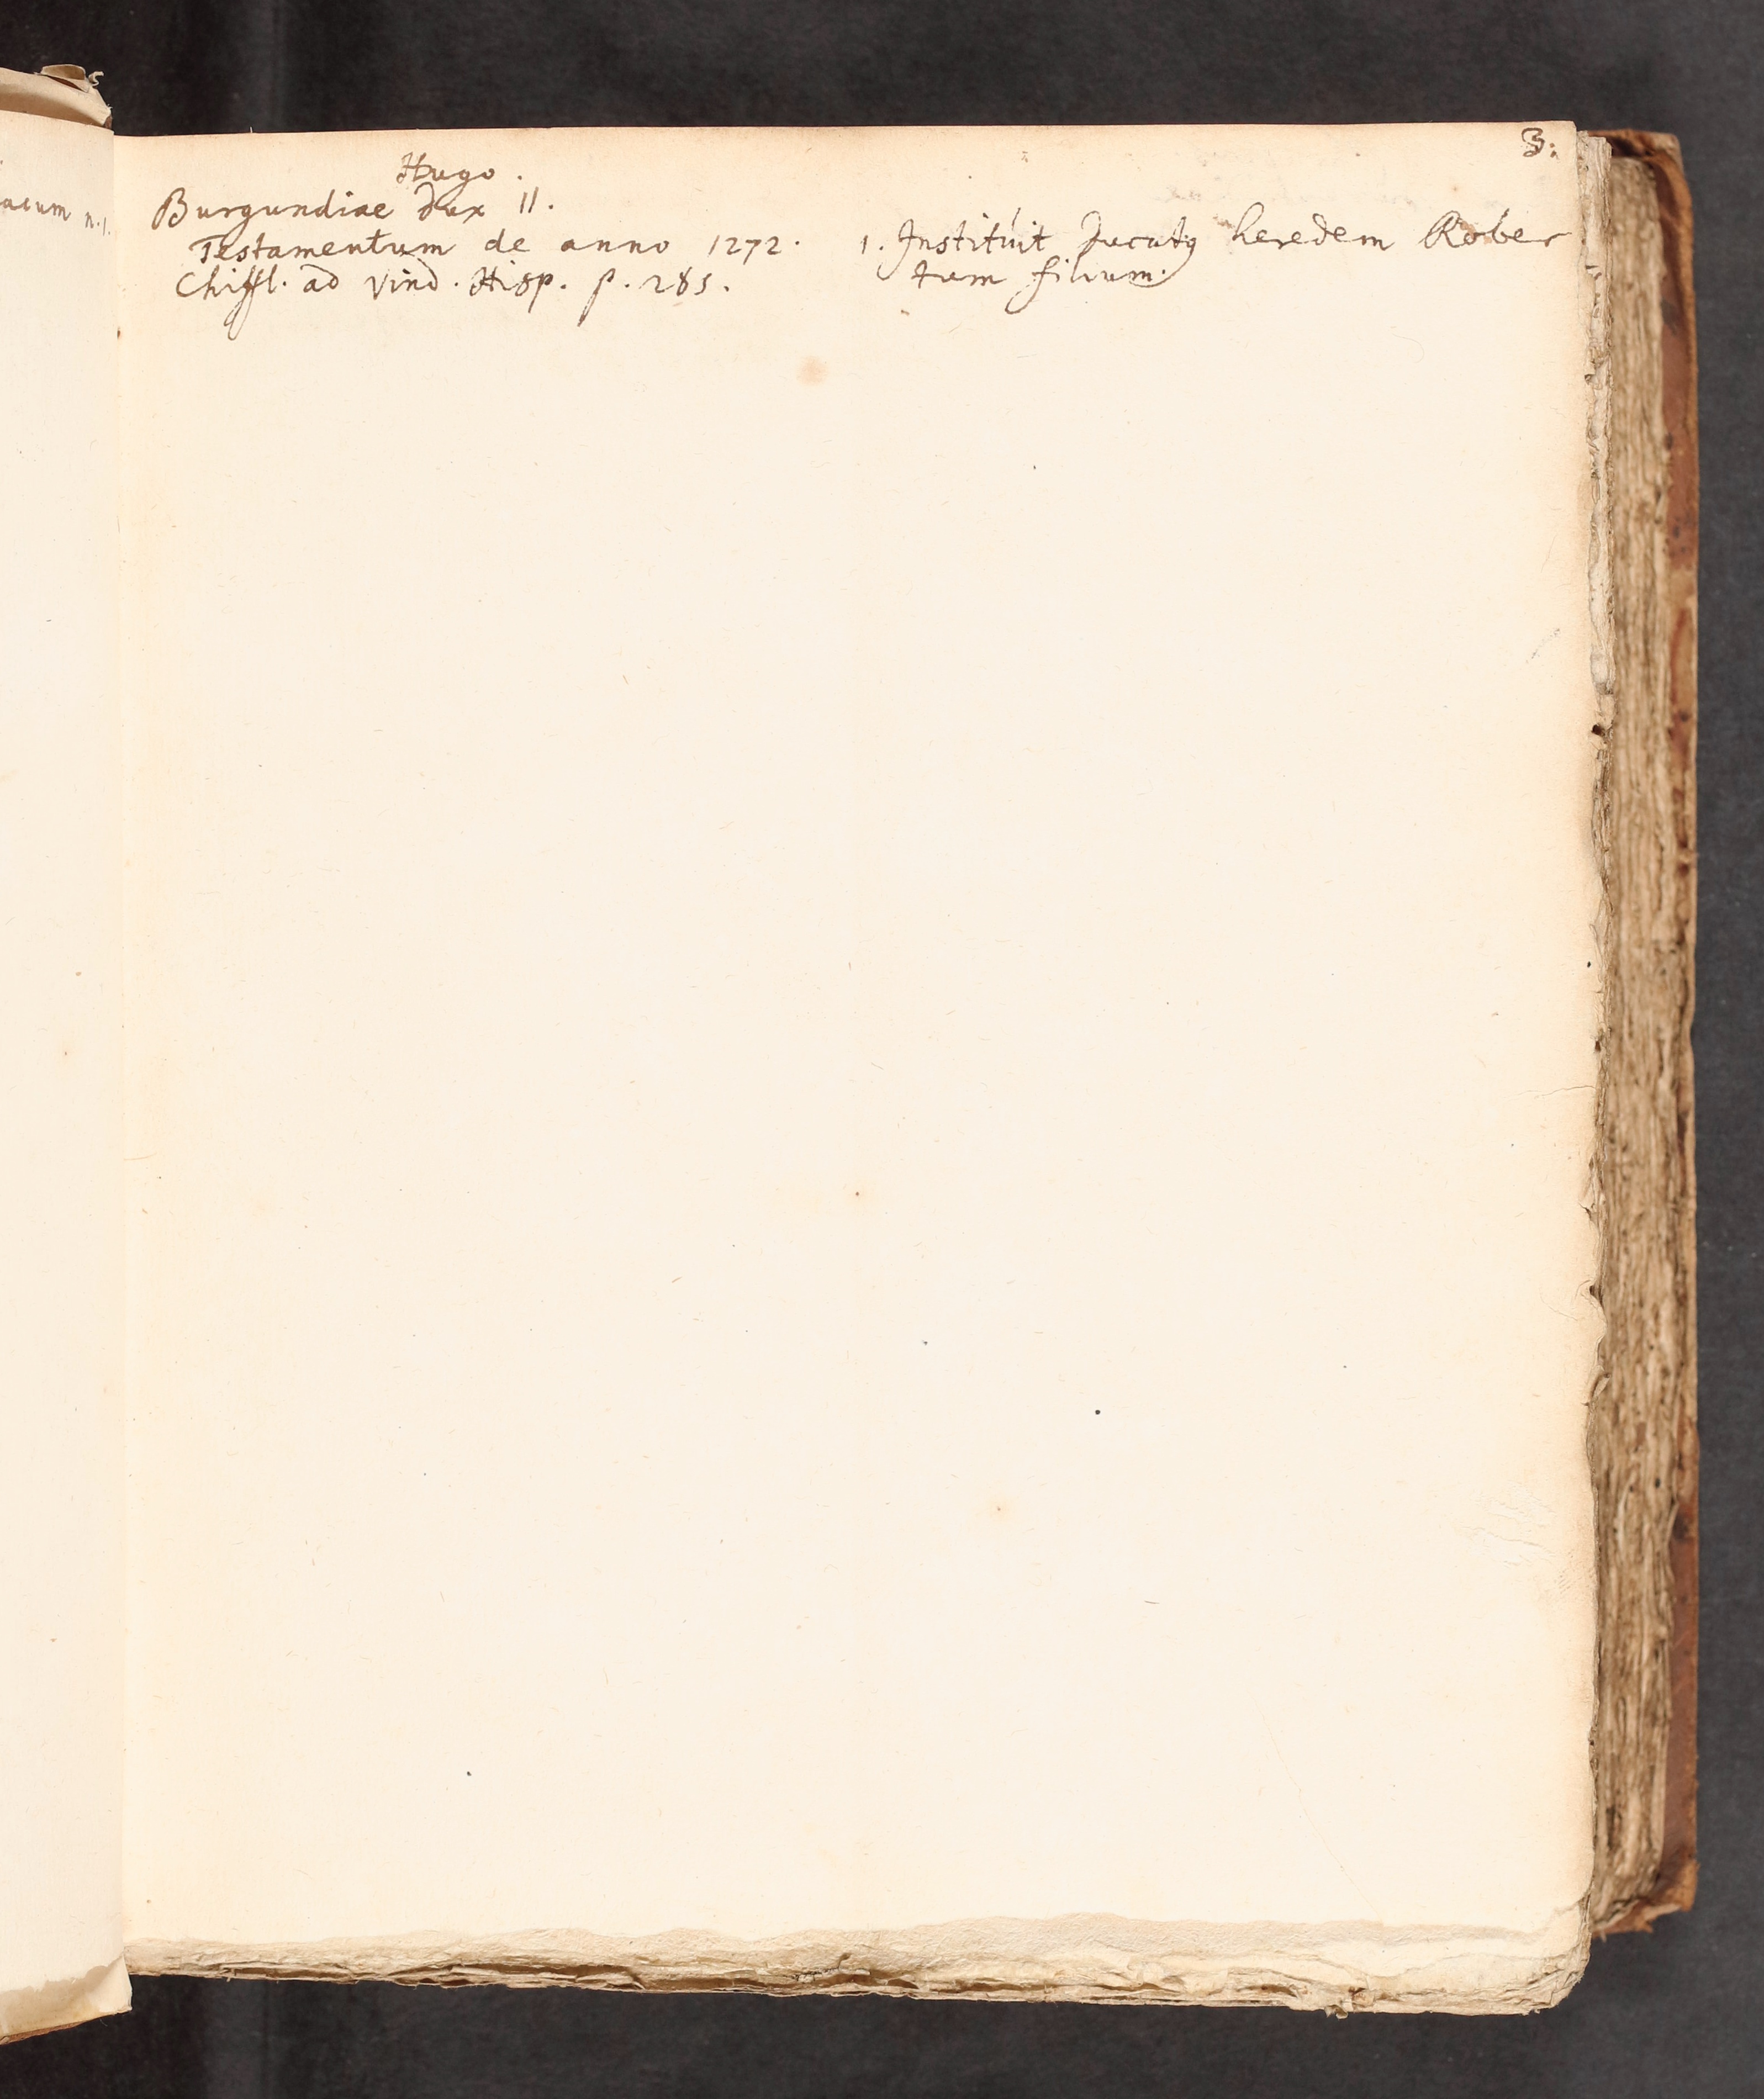 3.
Hugo.
Burgundiae Dux II.
Testamentum de anno 1272.
Chiffl. ad Vind. Hisp. p. 285.
1. Instituit Ducatꝰ heredem Rober
tum filium.
acum n. 1.